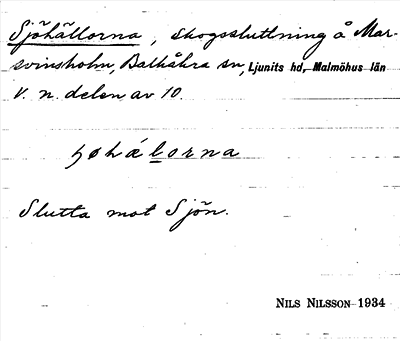 Sjöhällorna, skogssluttning å Mar-
svinsholm, Balkåkra sn, Ljunits hd, Malmöhus län
V. n. delen av 10.
Slutta mot Sjön.
NILS NILSSON 1934